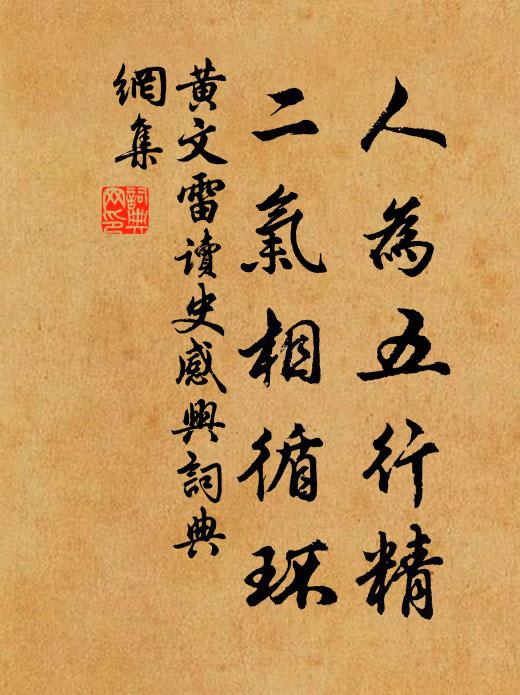 人為五行精
二氣相循环
黃文雷讀史感興詞典
網集
詞典
网印